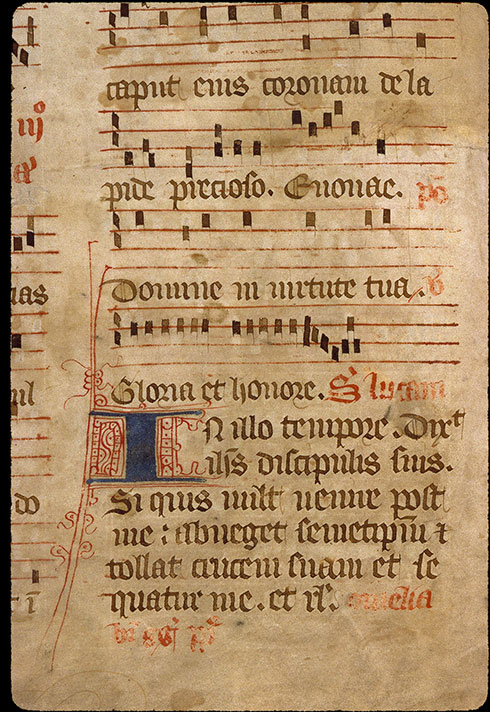 caput eius coronam de la
pide precioso. Euouae. ps
Domine in uirtute tua.
Gloria et honore. S lucam
IN illo tempore. Dixt
ihs discipulis suis.
Si quis uult uenire post
me: abneget semetipm ⁊
tollat crucem suam et se
quatur me. et rl. omelia
ias
do